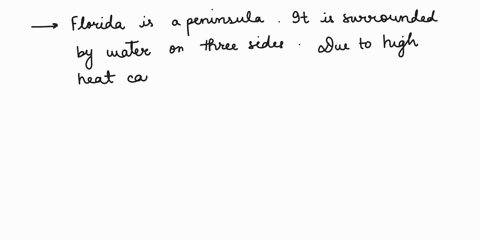 → Florida is a peninsula. It is surrounded
by water on three sides. Due to high
heat ca